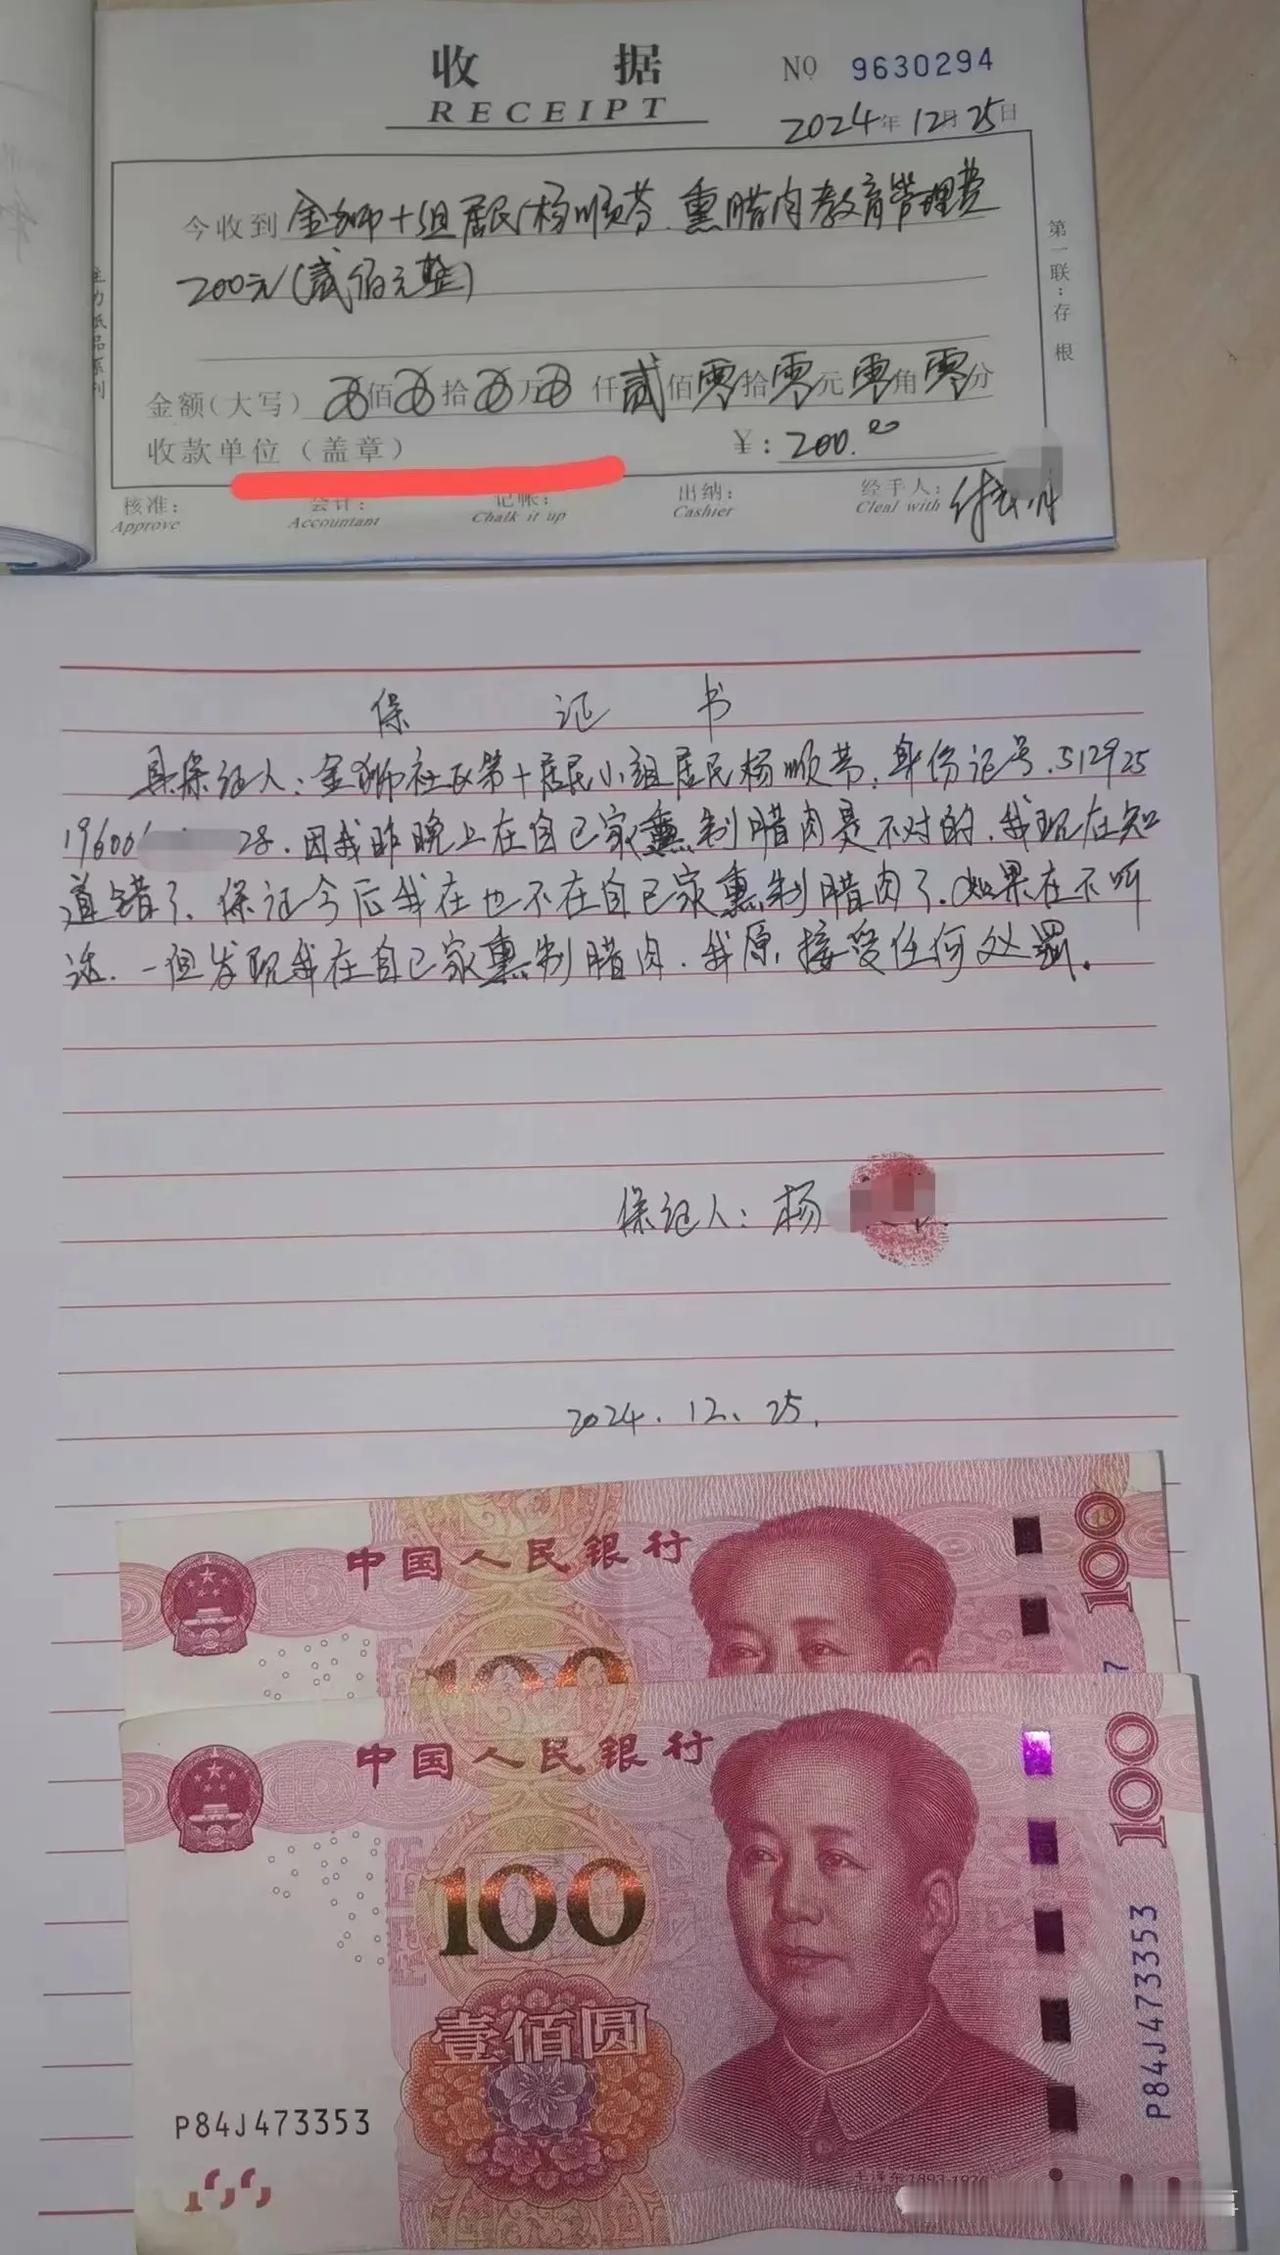 收 据
RECEIPT
NO 9630294
2024年12月25日
今收到 金狮十组居民杨顺芬.熏腊肉教育管理费
200元(贰佰元整)
第一联:存根
金额(大写) 佰 拾 万 仟贰佰零拾零元零角零分
收款单位(盖章) ¥:200.00
核准: 会计: 记帐: 出纳: 经手人:
Approve Accountant Chalk it up Cashier Cleal with
保 证 书
具保证人:金狮社区第十居民小组居民杨顺芬.身份证号.512925
196001 28.因我昨晚上在自己家熏制腊肉是不对的.我现在知
道错了、保证今后我在也不在自己家熏制腊肉了.如果在不听
话.一但发现我在自己家熏制腊肉.我原接受任何处罚.
保证人:杨
2024.12.25.
中国人民银行
100
100
中国人民银行
100
100
壹佰圆
P84J473353
P84J473353
毛泽东1893-1976